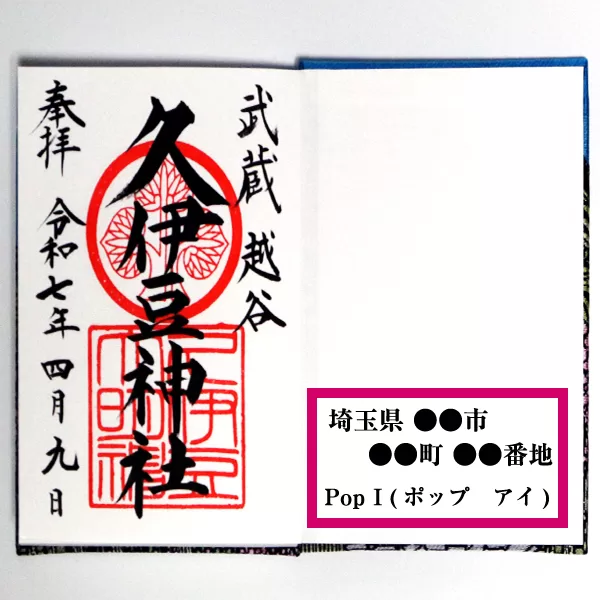 武蔵 越谷
久伊豆神社
奉拝 令和七年 四月 九日
埼玉県 ●●市
●●町 ●●番地
Pop I ( ポップ アイ )